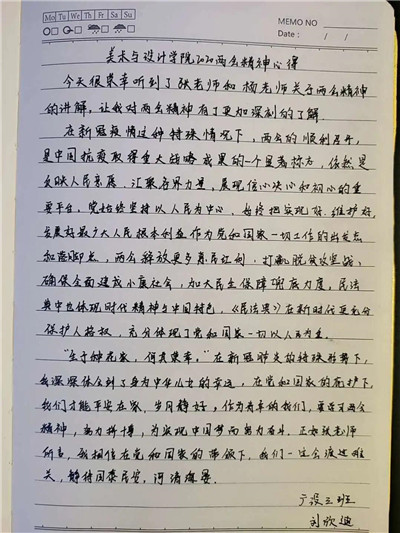 Mo Tu We Th Fr Sa Su
MEMO NO
Date : / /
美术与设计学院2020两会精神心得
今天很荣幸听到了张老师和杨老师关于两会精神
的讲解，让我对两会精神有了更加深刻的了解.
在新冠疫情这种特殊情况下，两会的顺利召开，
是中国抗疫取得重大战略成果的一个显著标志，依然是
反映人民意愿、汇聚各界力量，展现信心决心和初心的重
要平台，党始终坚持以人民为中心，始终把实现好、维护好、
发展好最广大人民根本利益作为党和国家一切工作的出发点
和落脚点，两会释放更多惠民红利，打赢脱贫攻坚战、
确保全面建成小康社会，加大民生保障兜底力度，民法
典中也体现时代精神与中国特色，《民法典》在新时代更充分
保护人格权，充分体现了党和国家一切以人民为主.
"生于种花家，何其荣幸。"在新冠肺炎的特殊形势下，
我深深体会到了身为中华儿女的幸运，在党和国家的庇护下，
我们才能平安在家，岁月静好，作为青年的我们，要追寻两会
精神，努力拼搏，为实现中国梦而努力奋斗，正如张老师
所言，我相信在党和国家的带领下，我们一定会渡过难
关，静待国泰民安，河清海晏.
广设三班
刘欣